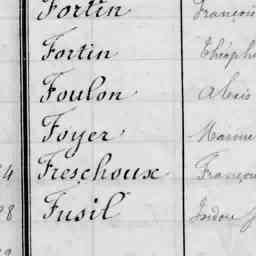 Fortin François
Fortin Théoph
Foulon Alexis
Foyer
4 Freschoux Franço
28 Fusil Isidore